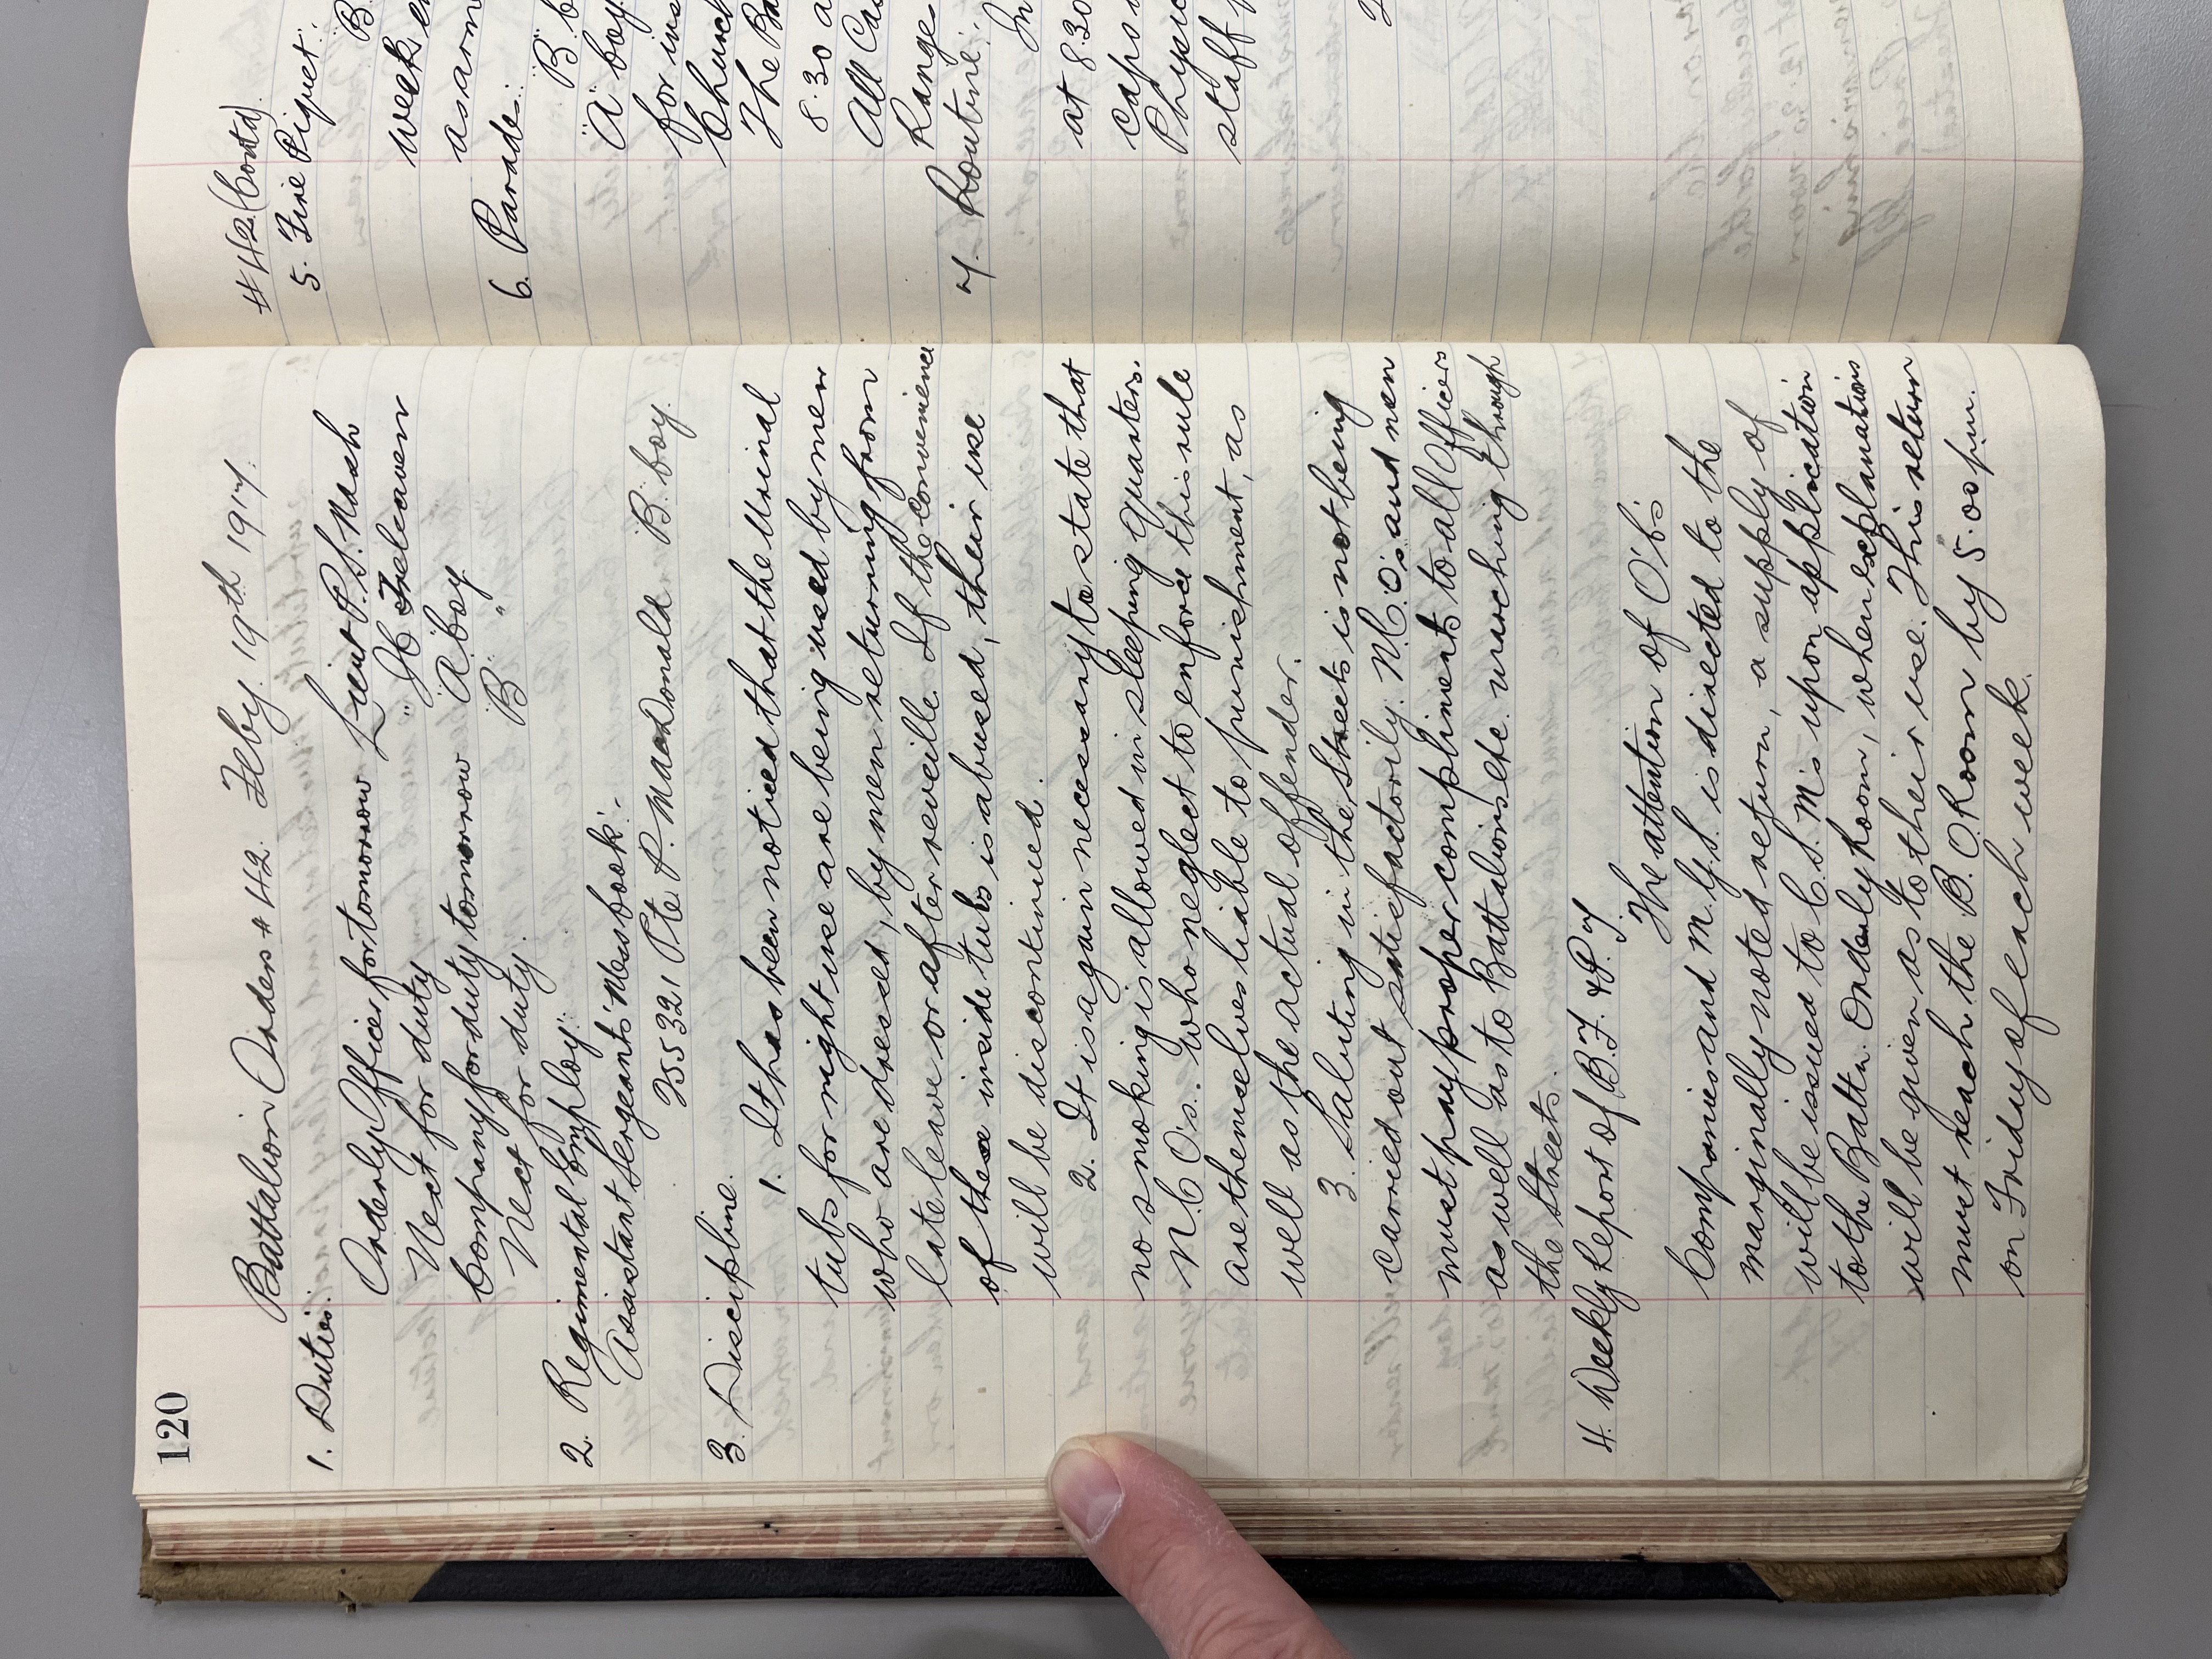 120
Battalion Orders # 42. Feby. 19th 1917.
1. Duties:
Orderly Officer for tomorrow Lieut P. S. Nash
Next for duty " H Treleaven
Company for duty tomorrow "A" Coy.
Next for duty. "B" "
2. Regimental Employ:
Assistant Sergeants' Mess Cook:-
255321 Pte P. MacDonald B. Coy.
3. Discipline.
1. It has been noticed that the Urinal
tubs for night use are being used by men
who are dressed, by men returning from
late leave or after reveille. If the convenience
of these inside tubs is abused, their use
will be discontinued.
2. It is again necessary to state that
no smoking is allowed in sleeping quarters.
N.C.O's. who neglect to enforce this rule
are themselves liable to punishment, as
well as the actual offender.
3. Saluting in the Streets is not being
carried out satisfactorily. N.C.O's and men
must pay proper compliments to all Officers
as well as to Battalions etc. marching through
the Streets.
4. Weekly Report of B.F. & P.T.
The attention of O's C's
Companies and M.G.S. is directed to the
marginally noted return, a supply of
will be issued to C.S.M's upon application
to the Battn. Orderly Room, when explanations
will be given as to their use. This return
must reach the B.O. Room by 5.00 p.m.
on Friday of each week.
# 42 (Contd)
5. Fire Piquet:
"B
week e
as arm
6. Parades:
"B" C
"A" Coy
for ins
Church
The Ba
8.30 a
All Ca
Range
7. Routine:
In
at 8.30
caps
Physic
staff